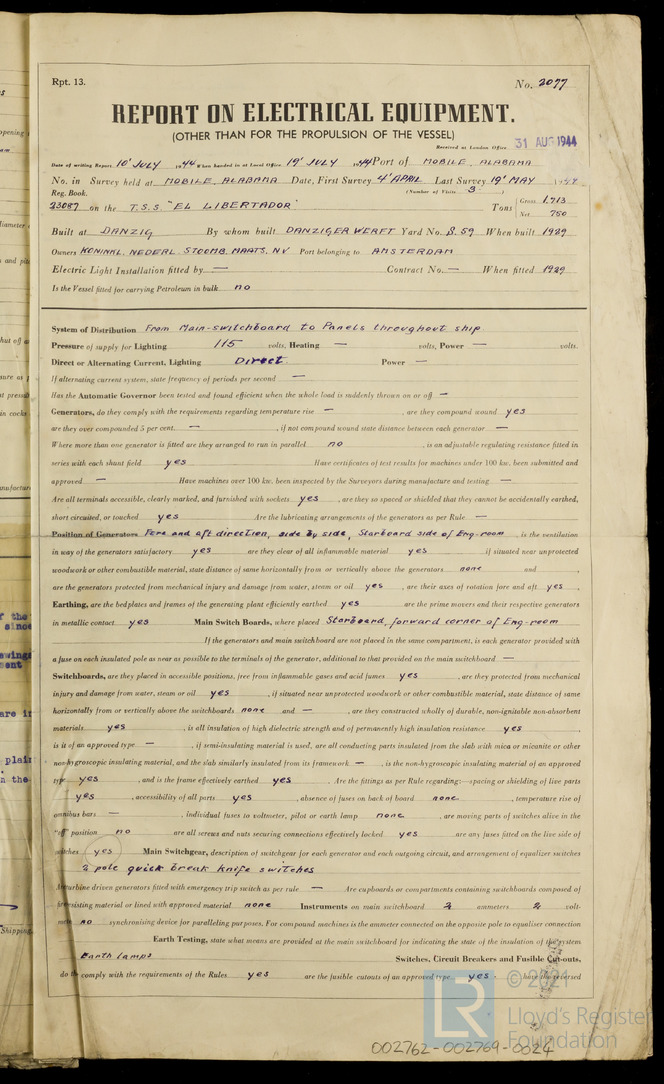 Rpt. 13.
No. 2077
REPORT ON ELECTRICAL EQUIPMENT.
(OTHER THAN FOR THE PROPULSION OF THE VESSEL)
Received at London Office 31 AUG 1944
Date of writing Report 10' JULY 1944 When handed in at Local Office 19' JULY 1944 Port of MOBILE, ALABAMA
No. in Survey held at MOBILE, ALABAMA Date, First Survey 4' APRIL Last Survey 19' MAY 1944
Reg. Book. (Number of Visits 3 )
23087 on the T.S.S "EL LIBERTADOR" Tons Gross 1,713
Net 750
Built at DANZIG By whom built DANZIGER WERFT Yard No. B.59 When built 1929
Owners KONINKL. NEDERL. STOOMB. MAATS. NV Port belonging to AMSTERDAM
Electric Light Installation fitted by — Contract No. — When fitted 1929
Is the Vessel fitted for carrying Petroleum in bulk no
System of Distribution From Main-switchboard to Panels throughout ship
Pressure of supply for Lighting 115 volts, Heating — volts, Power — volts.
Direct or Alternating Current, Lighting Direct. Power —
If alternating current system, state frequency of periods per second —
Has the Automatic Governor been tested and found efficient when the whole load is suddenly thrown on or off —
Generators, do they comply with the requirements regarding temperature rise — , are they compound wound yes
are they over compounded 5 per cent. — , if not compound wound state distance between each generator —
Where more than one generator is fitted are they arranged to run in parallel no , is an adjustable regulating resistance fitted in
series with each shunt field yes Have certificates of test results for machines under 100 kw. been submitted and
approved — Have machines over 100 kw. been inspected by the Surveyors during manufacture and testing —
Are all terminals accessible, clearly marked, and furnished with sockets yes , are they so spaced or shielded that they cannot be accidentally earthed,
short circuited, or touched yes Are the lubricating arrangements of the generators as per Rule —
Position of Generators Fore and aft direction, side by side, Starboard side of Eng-room , is the ventilation
in way of the generators satisfactory yes are they clear of all inflammable material yes if situated near unprotected
woodwork or other combustible material, state distance of same horizontally from or vertically above the generators none and ,
are the generators protected from mechanical injury and damage from water, steam or oil yes , are their axes of rotation fore and aft yes ,
Earthing, are the bedplates and frames of the generating plant efficiently earthed yes are the prime movers and their respective generators
in metallic contact yes Main Switch Boards, where placed Starboard, forward corner of Eng-room
If the generators and main switchboard are not placed in the same compartment, is each generator provided with
a fuse on each insulated pole as near as possible to the terminals of the generator, additional to that provided on the main switchboard —
Switchboards, are they placed in accessible positions, free from inflammable gases and acid fumes yes , are they protected from mechanical
injury and damage from water, steam or oil yes , if situated near unprotected woodwork or other combustible material, state distance of same
horizontally from or vertically above the switchboards none and — , are they constructed wholly of durable, non-ignitable non-absorbent
materials yes , is all insulation of high dielectric strength and of permanently high insulation resistance yes ,
is it of an approved type — , if semi-insulating material is used, are all conducting parts insulated from the slab with mica or micanite or other
non-hygroscopic insulating material, and the slab similarly insulated from its framework — , is the non-hygroscopic insulating material of an approved
type yes , and is the frame effectively earthed yes . Are the fittings as per Rule regarding:—spacing or shielding of live parts
yes , accessibility of all parts yes , absence of fuses on back of board none , temperature rise of
omnibus bars — , individual fuses to voltmeter, pilot or earth lamp none , are moving parts of switches alive in the
"off" position no are all screws and nuts securing connections effectively locked yes are any fuses fitted on the live side of
switches yes Main Switchgear, description of switchgear for each generator and each outgoing circuit, and arrangement of equalizer switches
2 pole quick break knife switches
Are turbine driven generators fitted with emergency trip switch as per rule — Are cupboards or compartments containing switchboards composed of
fire-resisting material or lined with approved material none Instruments on main switchboard 2 ammeters 2 volt-
meters no synchronising device for paralleling purposes. For compound machines is the ammeter connected on the opposite pole to equaliser connection
Earth Testing, state what means are provided at the main switchboard for indicating the state of the insulation of the system
Earth lamps Switches, Circuit Breakers and Fusible Cut-outs,
do the comply with the requirements of the Rules yes are the fusible cutouts of an approved type yes have the reversed
© 2021
LR Lloyd's Register
Foundation
002762-002769-0024